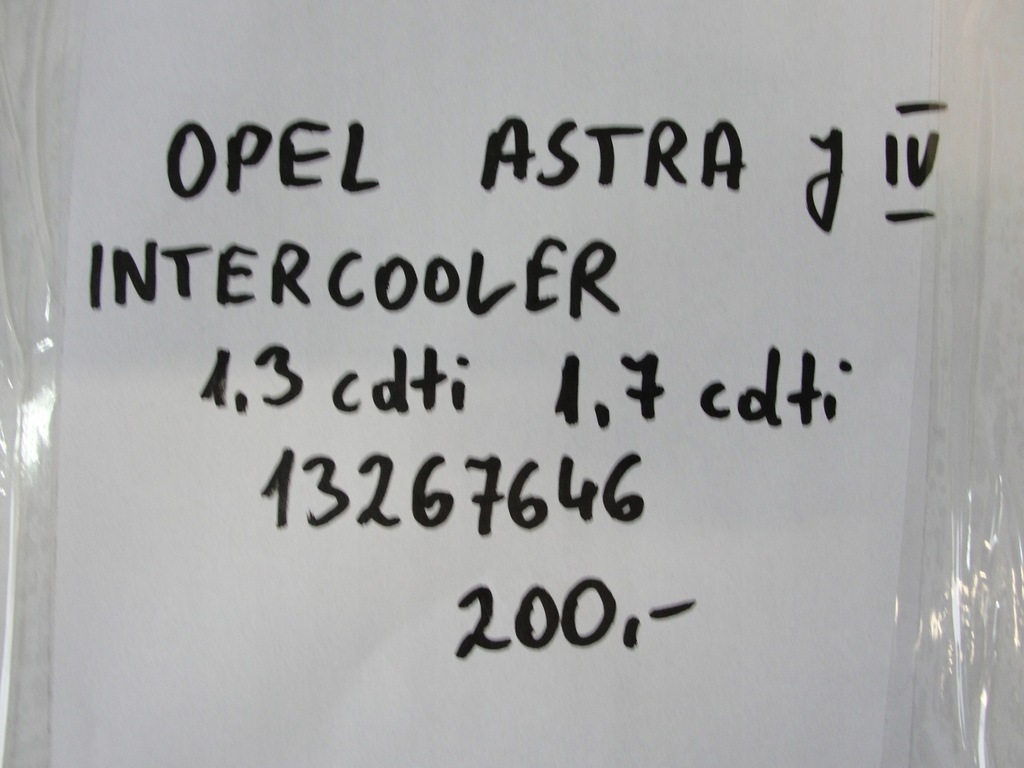 OPEL ASTRA J IV
INTERCOOLER
1.3 cdti 1.7 cdti
13267646
200,-